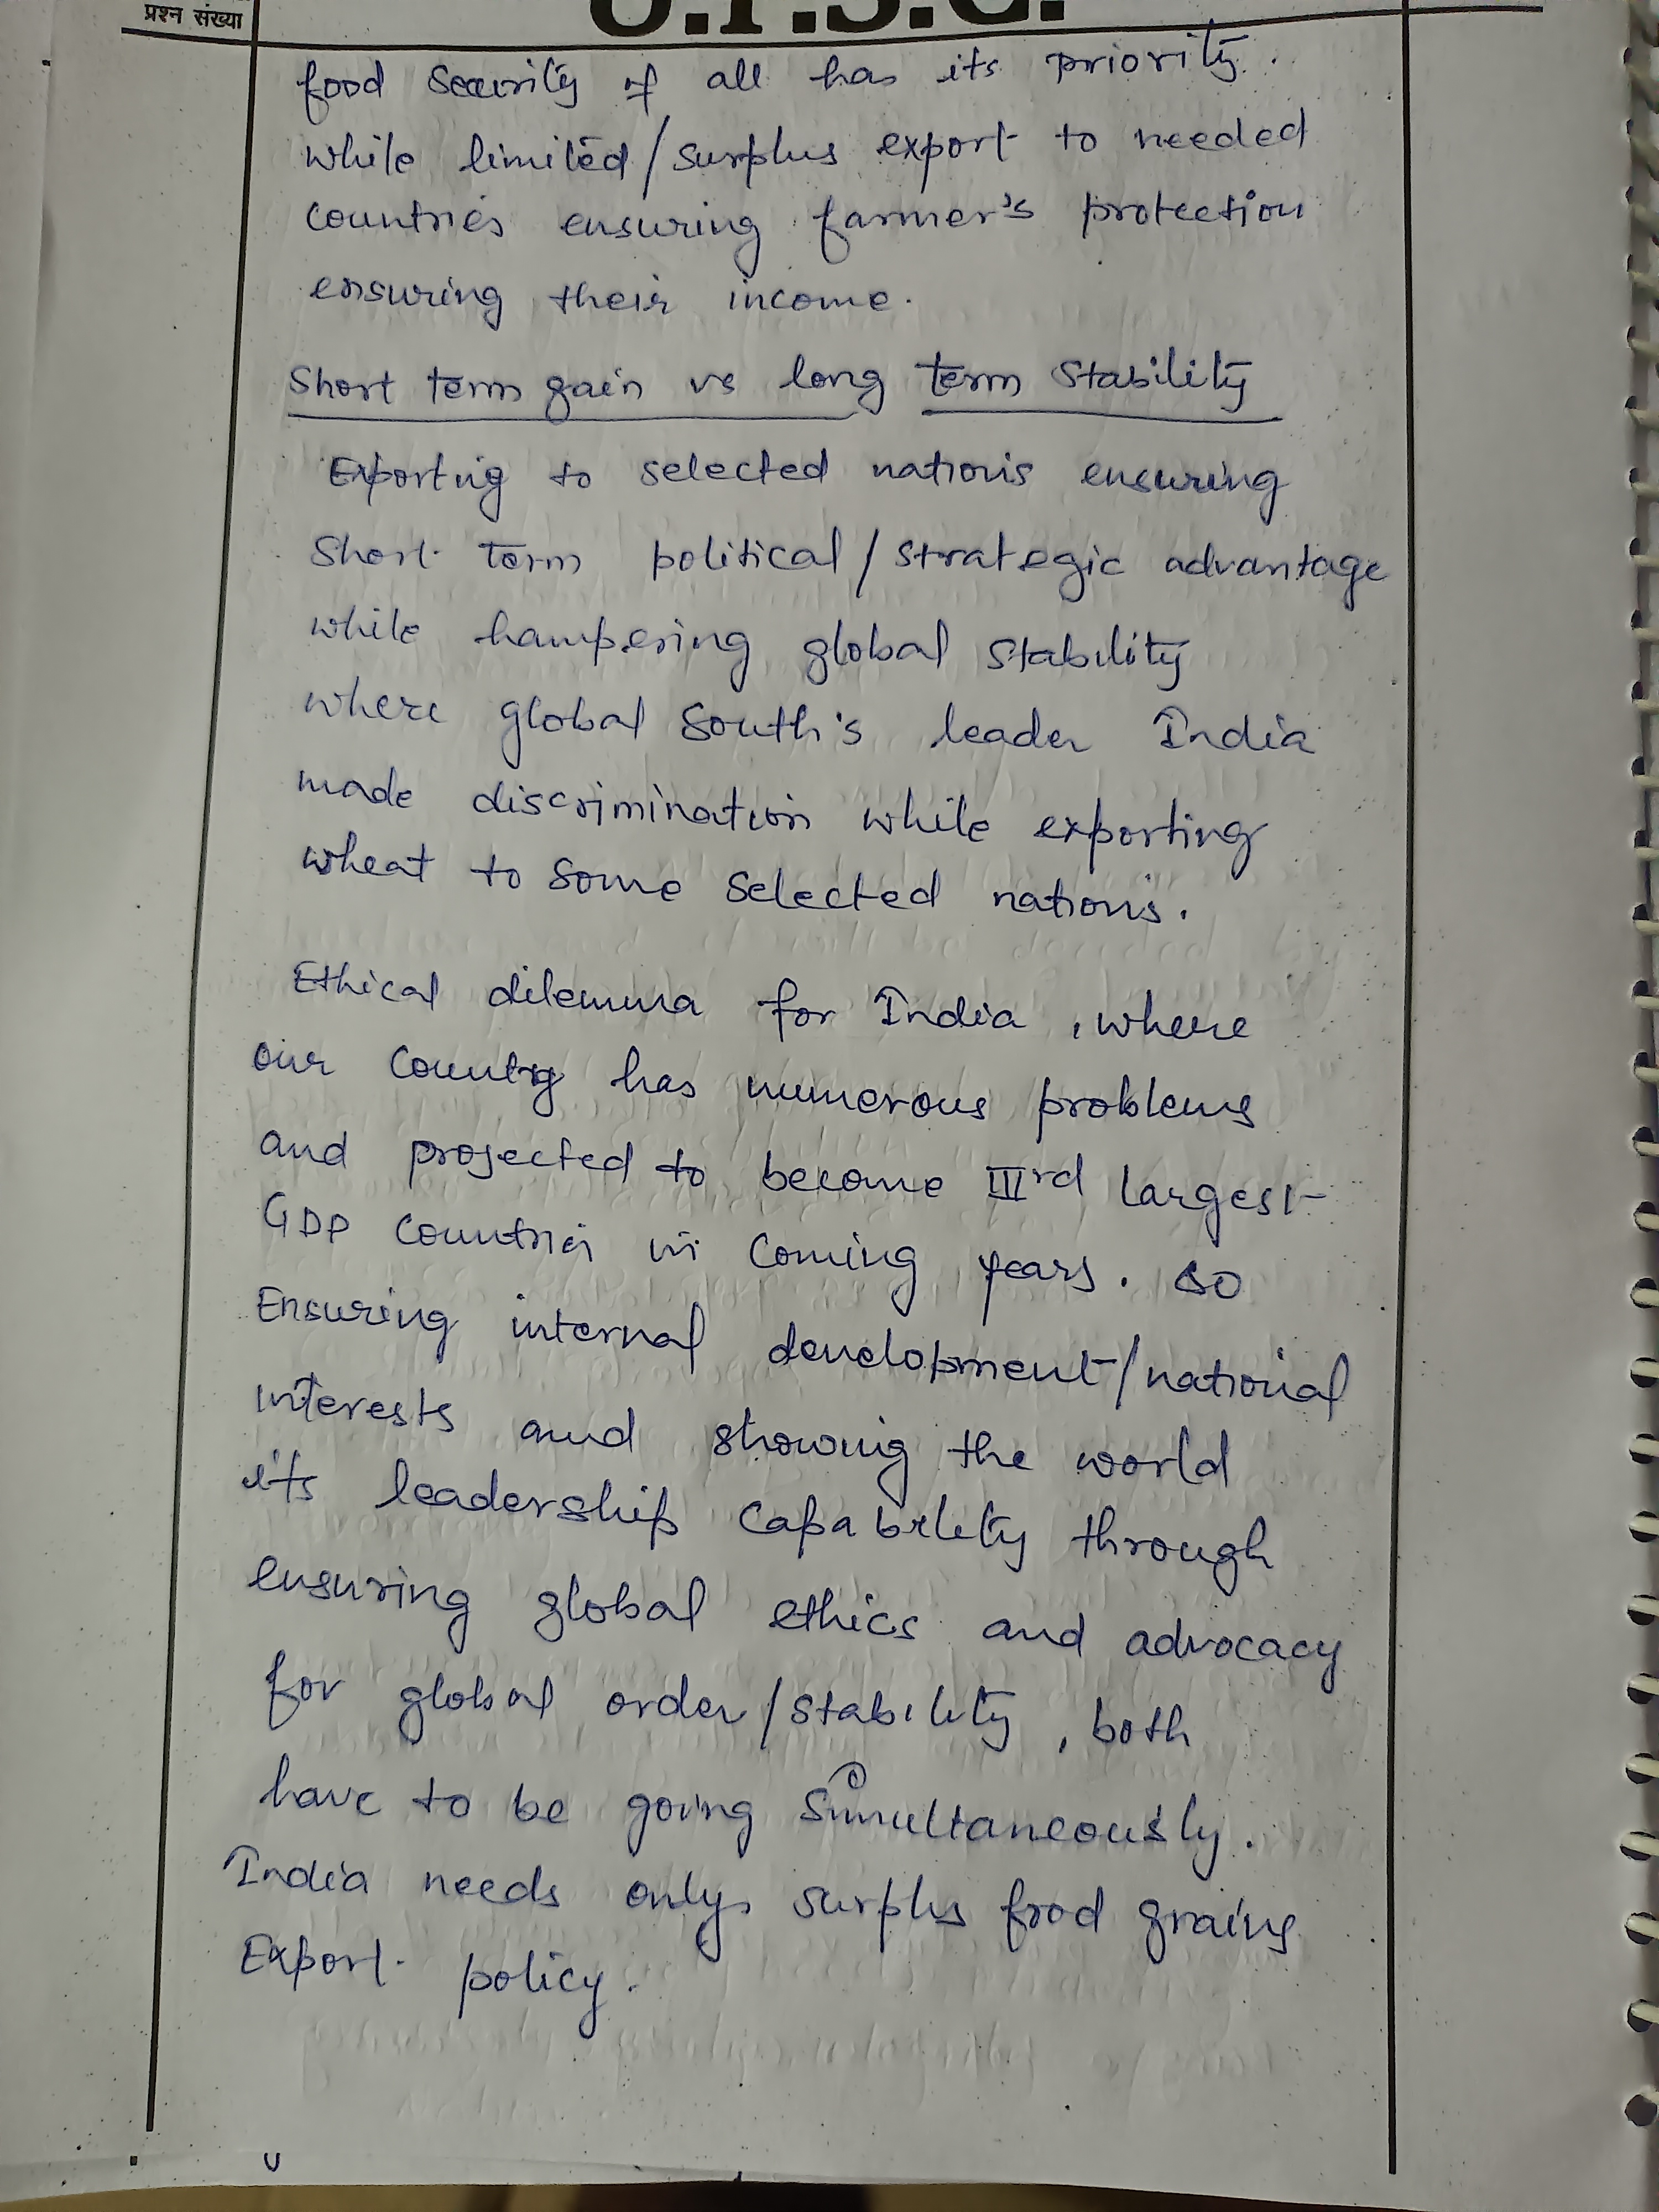 प्रश्न संख्या
U.P.S.C.
food security of all has its priority.
while limited/surplus export to needed
countries ensuring farmer's protection
ensuring their income.
Short term gain vs long term stability
Exporting to selected nations ensuring
short term political/strategic advantage
while hampering global stability
where global south's leader India
made discrimination while exporting
wheat to some selected nations.
Ethical dilemma for India, where
our country has numerous problems
and projected to become IIIrd largest
GDP countries in coming years. so
Ensuring internal development/national
interests and showing the world
its leadership capability through
ensuring global ethics and advocacy
for global order/stability, both
have to be going simultaneously.
India needs only surplus food grains
Export policy.